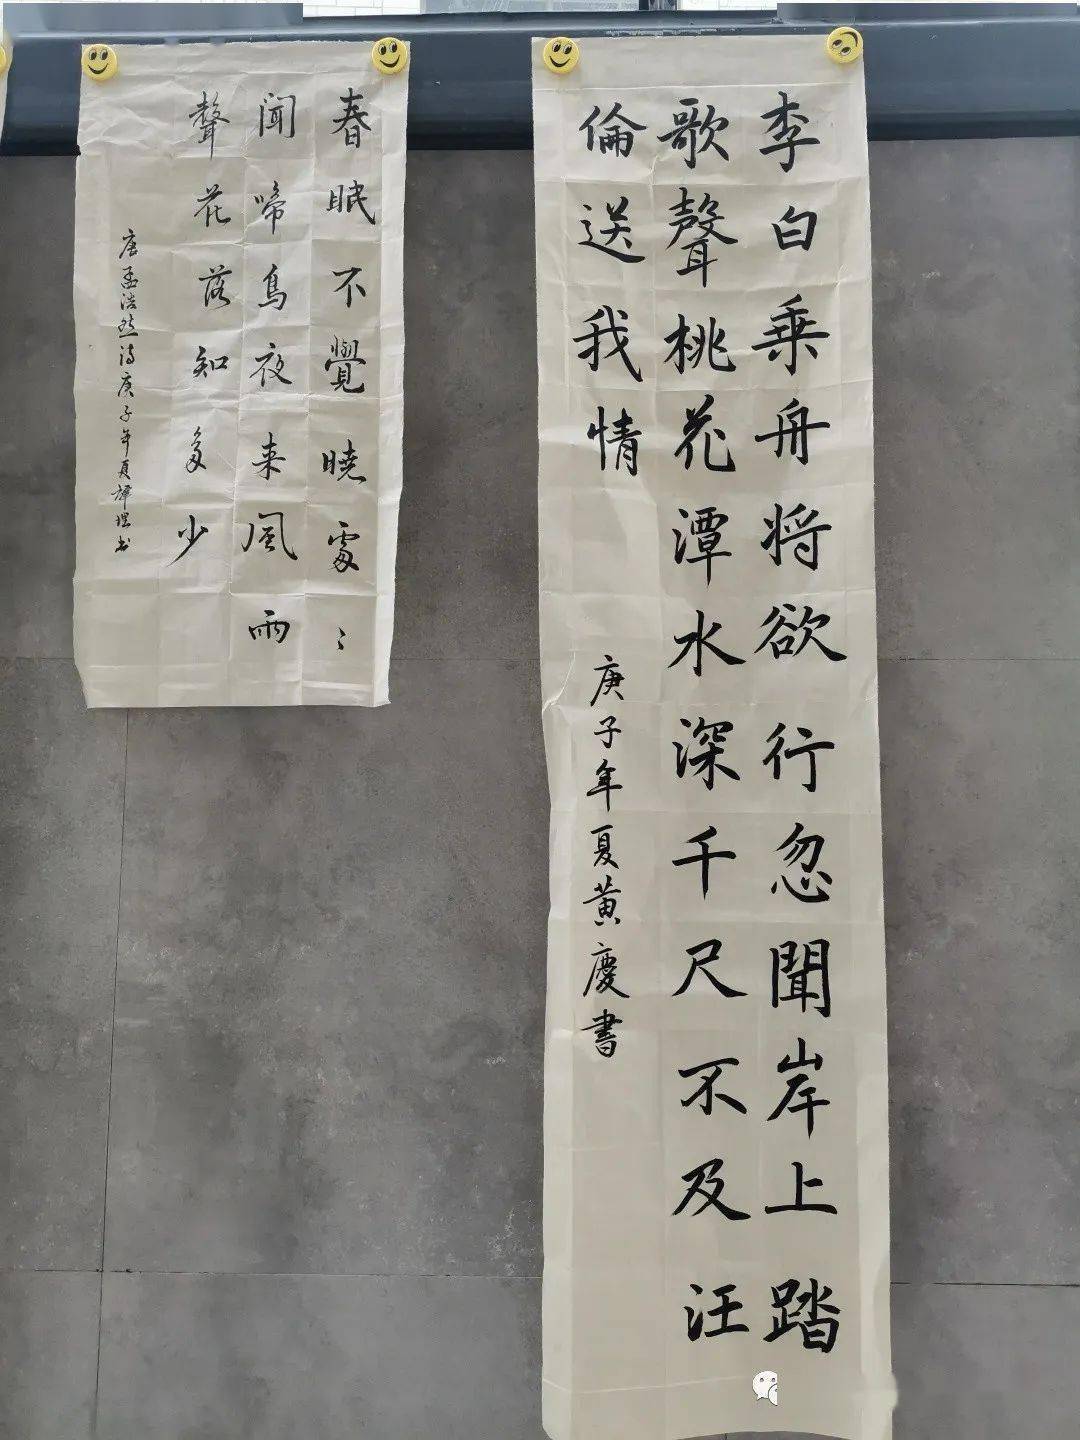 李白乘舟将欲行忽聞岸上踏
歌聲桃花潭水深千尺不及汪
倫送我情
庚子年夏黄慶書
春眠不覺曉處〻
聞啼鳥夜来風雨
聲花落知多少
唐孟浩然诗庚子年夏书